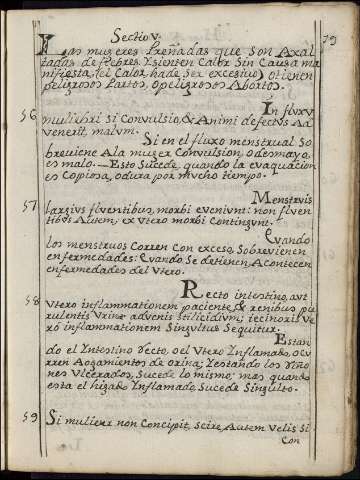 Sectio v.
79
Las mugeres Preñadas que son Axal
tadas de fiebres Y sienten Calor Sin Causa ma
nifiesta, (el Calor, hade Ser excesivo) o tienen
peligrosos Partos, o peligrosos Abortos.
56 In fluxu
muliebri Si Convulsio, & Animi defectus Ad
venerit, malum.
Si en el fluxo menstrual So
breviene Ala muger Convulsion, o desmayo,
es malo. — Esto Sucede, quando la evaquacion
es Copiosa, o dura por mucho tiempo.
57 Menstruis
largius fluentibus, morbi eveniunt: non fluen
tibus Autem, ex Utero morbi Contingunt.
Quando
los menstruos Corren Con exceso, Sobrevienen
enfermedades: Quando Se detienen, Acontecen
enfermedades del Utero.
58 Recto intestino, aut
Utero inflammationem paciente, & renibus pu
rulentis Urinæ advenit stilicidium; iecinori Ve
ro inflammationem Singultus Sequitur.
Estan
do el Yntestino Recto, o el Utero Ynflamado, ocu
rren Aogamientos de orina; Yestando los Riño
nes Ulcerados, Sucede lo mismo; mas quando
esta el higado Ynflamado, Sucede Singulto.
59 Si mulier non Concipit, scire, Autem Velis, Si
Con